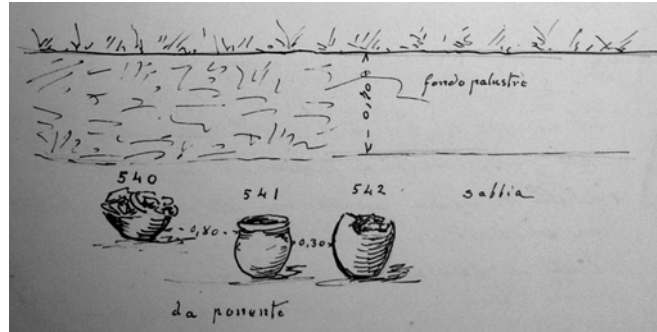 fondo palustre
0,80
540
541
542
sabbia
0,80
0,30
da ponente